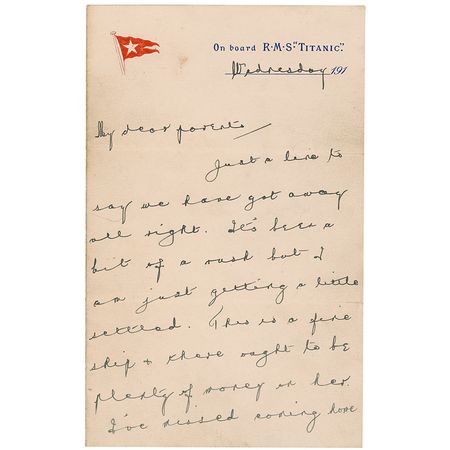 On board R·M·S. "TITANIC".
Wednesday 191
My dear parents
Just a line to
say we have got away
all right. It's been a
bit of a rush but I
am just getting a little
settled. This is a fine
ship & there ought to be
plenty of money in her.
I've missed coming home